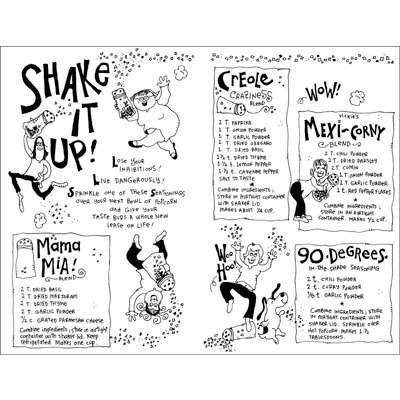 Shake
It
Up!
Lose your
inhibitions!
Live dangerously!
Sprinkle one of these seasonings
over your next bowl of popcorn
and give your
taste buds a whole new
lease on life!
Mama
Mia!
Blend
2 T. dried basil
1 T. dried marjoram
1 T. dried thyme
1 T. garlic powder
1/2 c. grated parmesan cheese
Combine ingredients; store in airtight
container with shaker lid. Keep
refrigerated. Makes one cup.
Creole
Craziness
Blend
2 T. paprika
1 T. onion powder
1 T. garlic powder
1 T. dried oregano
1 T. dried basil
1 1/2 t. dried thyme
1 1/2 t. lemon pepper
1 1/2 t. cayenne pepper
salt to taste
Combine ingredients;
store in airtight container
with shaker lid.
Makes about 3/4 cup.
Wow!
Vickie's
Mexi-Corny
Blend
2 T. chili powder
2 T. dried parsley
2 T. cumin
1 T. onion powder
1 T. garlic powder
2 t. red pepper flakes
Combine ingredients;
store in an airtight
container. Makes 1/2 cup.
Woo
Hoo!
90-Degrees-
in-the-shade seasoning
2 t. chili powder
2 t. curry powder
1/2 t. garlic powder
Combine ingredients; store
in airtight container with
shaker lid. Sprinkle over
hot popcorn. Makes 1 1/2
tablespoons.